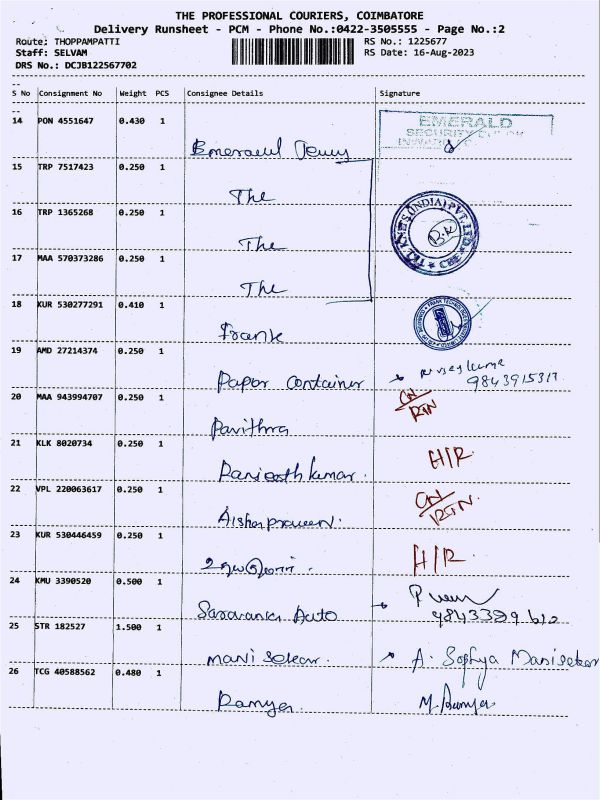 THE PROFESSIONAL COURIERS, COIMBATORE
Delivery Runsheet - PCM - Phone No.:0422-3505555 - Page No.:2
Route: THOPPAMPATTI RS No.: 1225677
Staff: SELVAM RS Date: 16-Aug-2023
DRS No.: DCJB122567702
S No Consignment No Weight PCS Consignee Details Signature
14 PON 4551647 0.430 1
EMERALD
SECURITY
Emerald
15 TRP 7517423 0.250 1
The
16 TRP 1365268 0.250 1
The
17 MAA 570373286 0.250 1
The
18 KUR 530277291 0.410 1
Frank
19 AMD 27214374 0.250 1
Paper Container 9843915317
20 MAA 943994707 0.250 1
CN/RTN
Pavithra
21 KLK 8020734 0.250 1
H/R
Ranjeeth kumar.
22 VPL 220063617 0.250 1
CN/RTN.
23 KUR 530446459 0.250 1
H/R.
24 KMU 3390520 0.500 1
Saravana Auto
25 STR 182527 1.500 1
Mani sekar. A. Sophya Manisekar
26 TCG 40588562 0.480 1
Ramya. M. Ramya